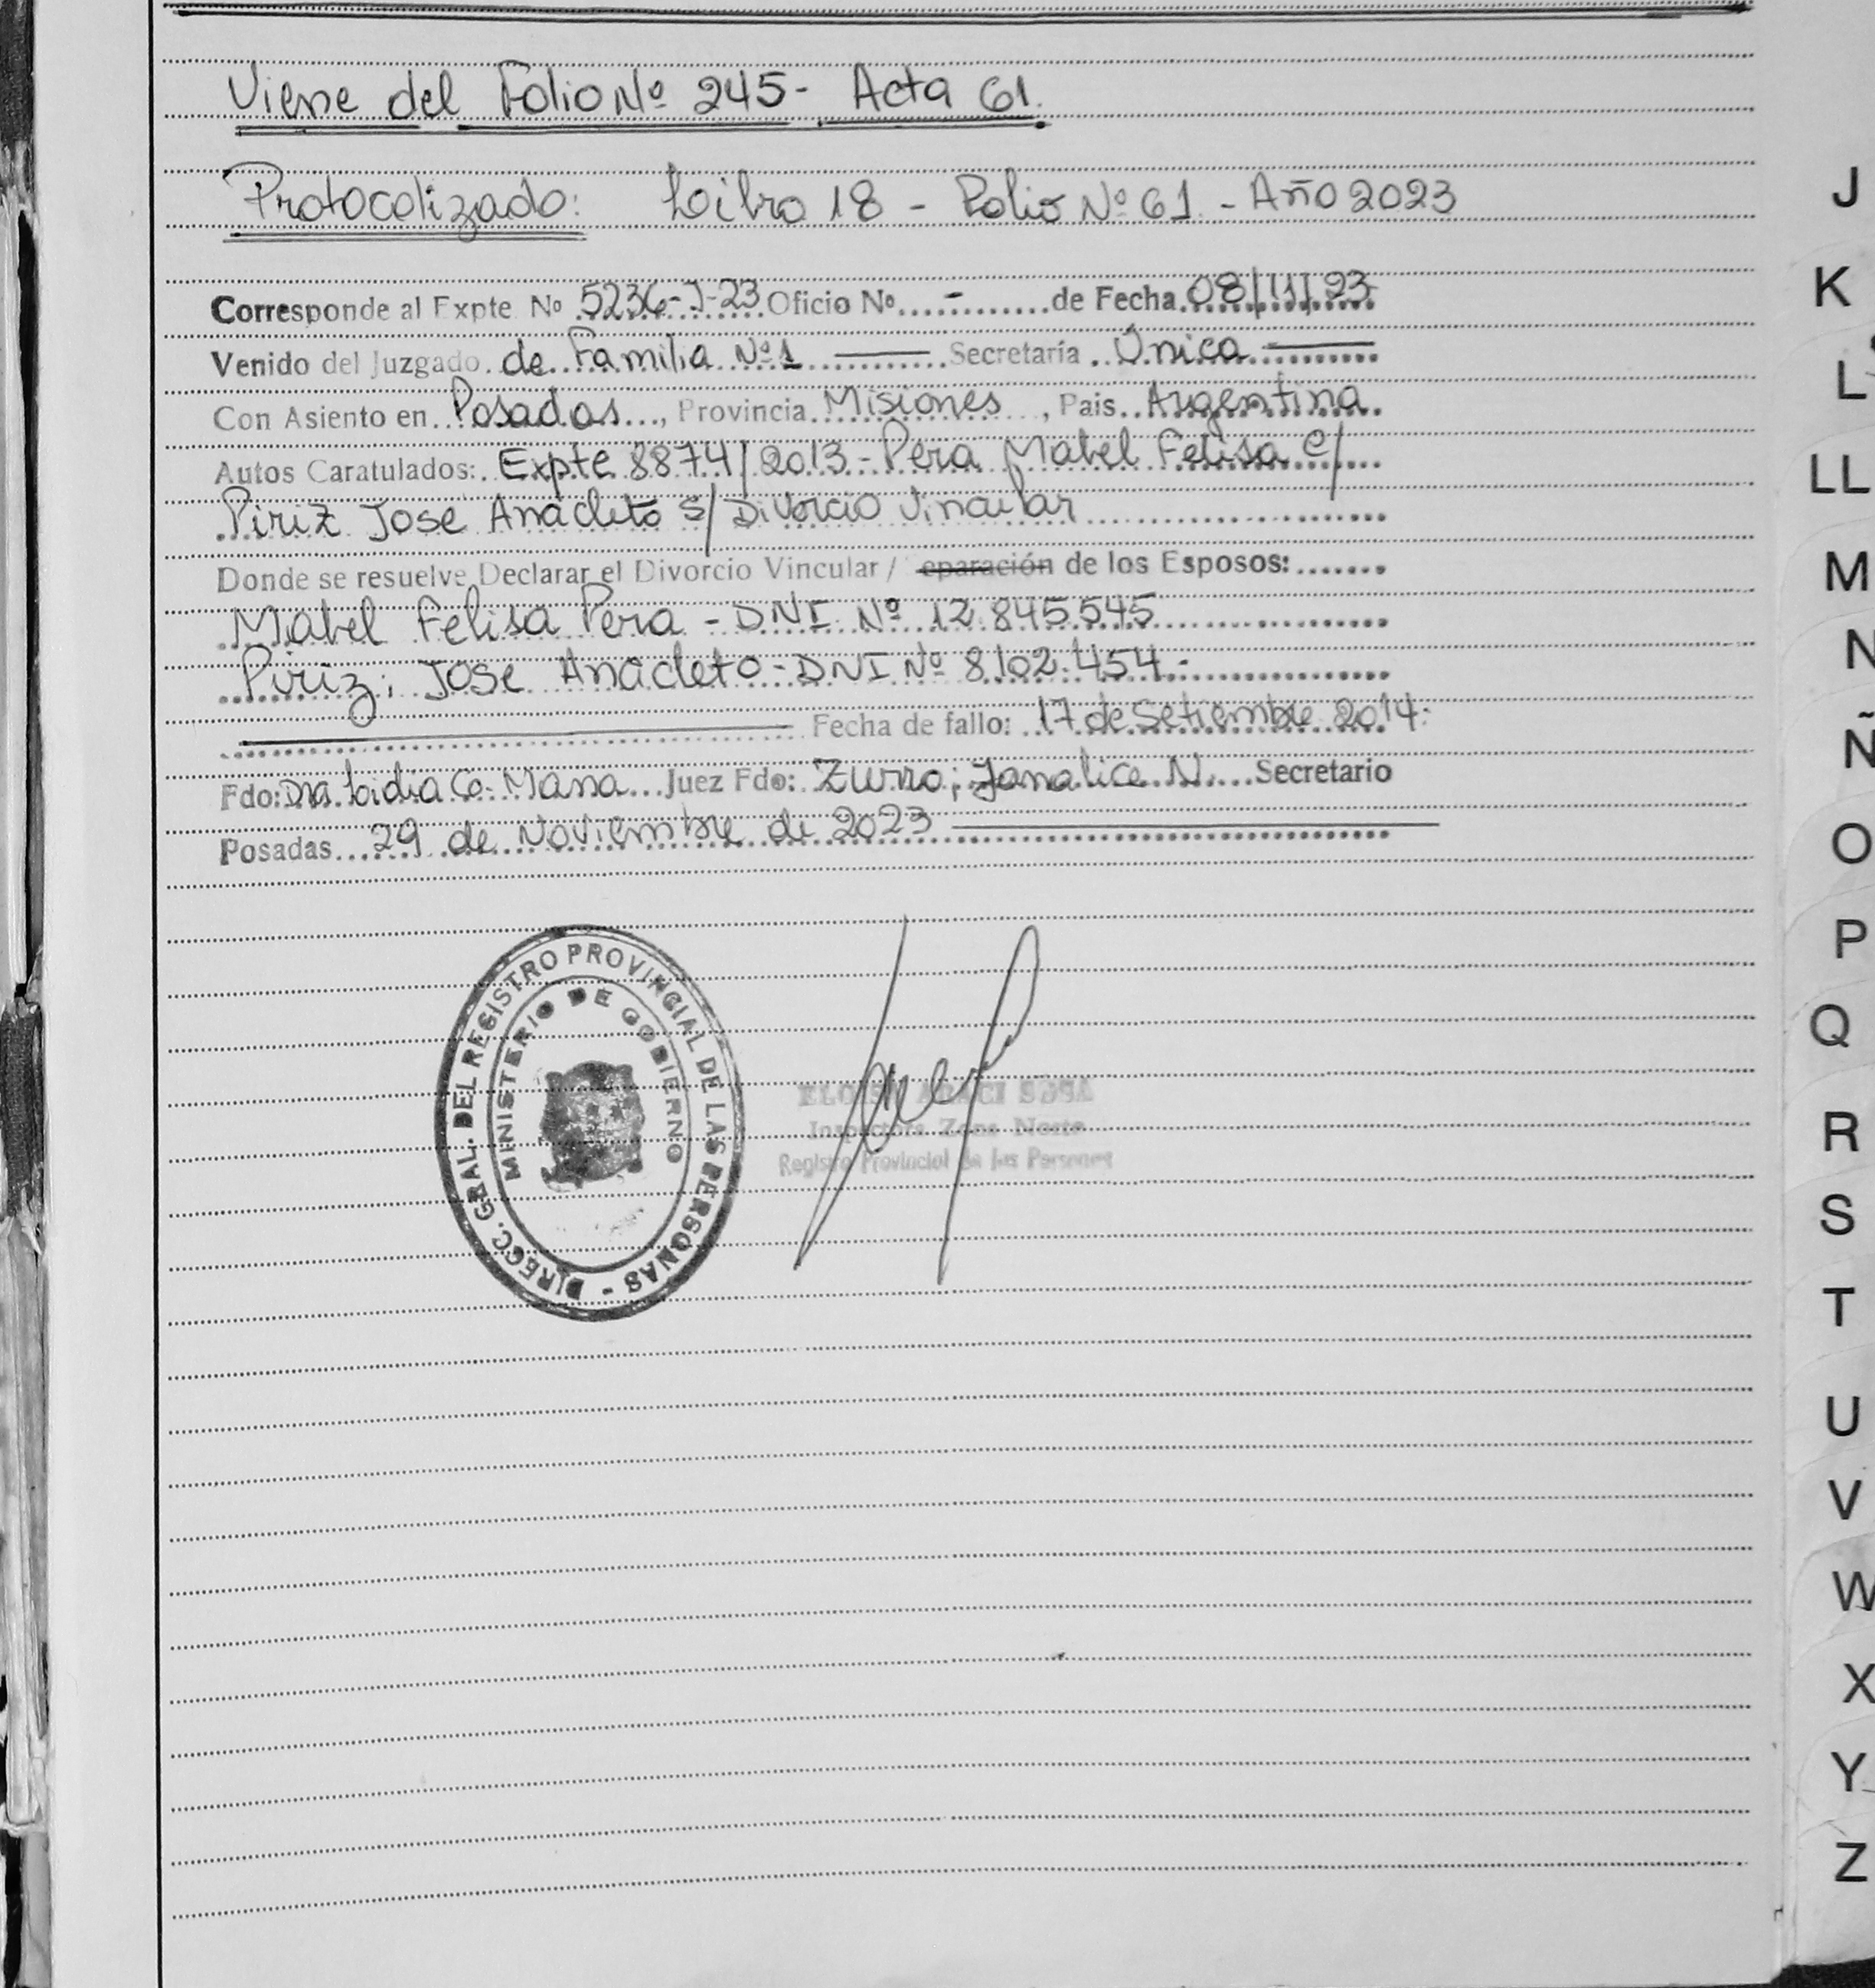 Viene del Folio Nº 245- Acta 61.
Protocolizado: Libro 18 - Folio Nº 61 - Año 2023
Corresponde al Expte. Nº 5236-J-23 Oficio Nº....-.......de Fecha 08/11/23
Venido del Juzgado de Familia Nº1 Secretaría Única
Con Asiento en Posadas..., Provincia Misiones, Pais Argentina
Autos Caratulados: Expte 8874/2013- Pera Mabel Felisa c/
Piriz Jose Anacleto s/ Divorcio Vincular
Donde se resuelve Declarar el Divorcio Vincular / eparación de los Esposos:
Mabel Felisa Pera - DNI Nº 12.845.545
Piriz; Jose Anacleto - DNI Nº 8.102.454.-
Fecha de fallo: 17 de Setiembre 2014.
Fdo: Dra. Lidia C. Juez Fdo: Zurro; N. Secretario
Posadas 29 de Noviembre de 2023
DIRECC. GRAL. DEL REGISTRO PROVINCIAL DE LAS PERSONAS -
MINISTERIO DE GOBIERNO
ELOISA ARACI SOSA
Inspectora Zona Norte
Registro Provincial de las Personas
J
K
L
LL
M
N
Ñ
O
P
Q
R
S
T
U
V
W
X
Y
Z